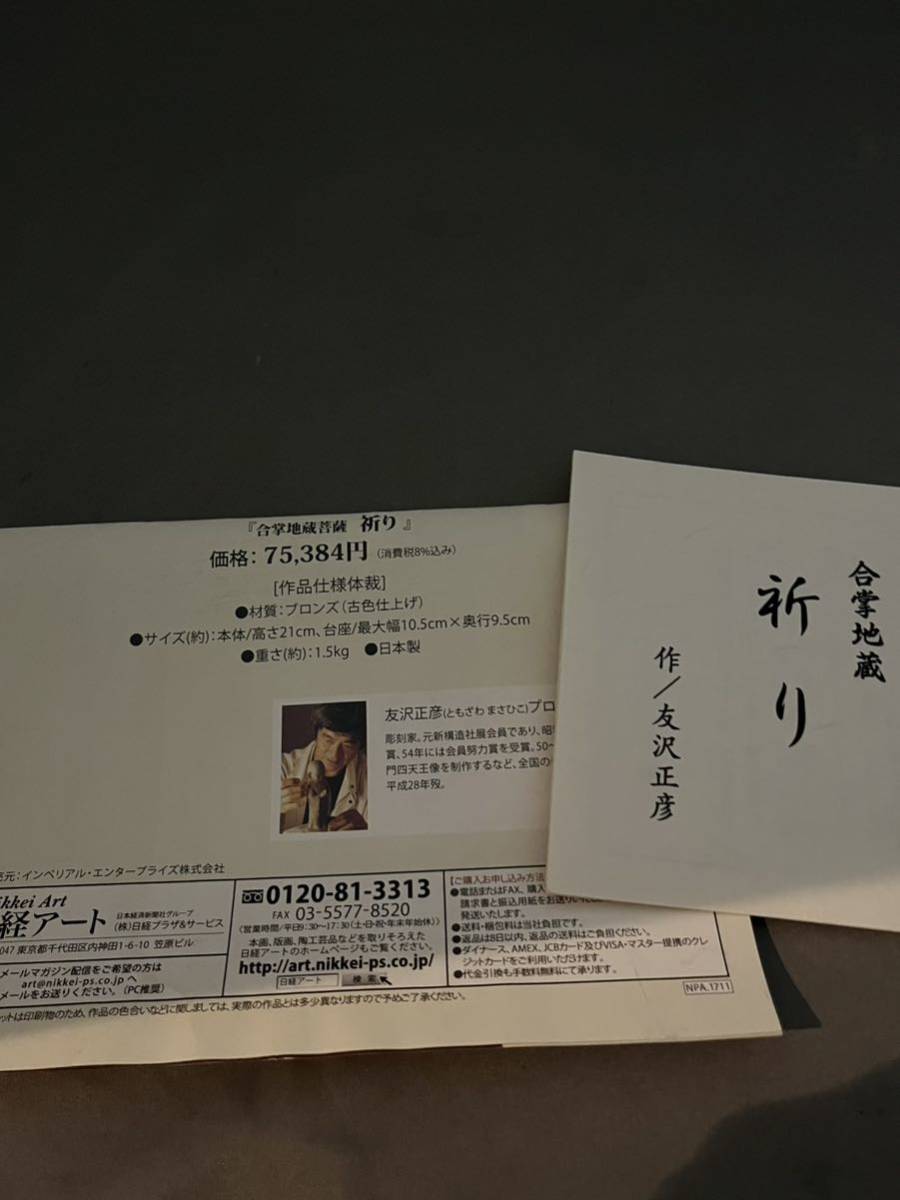 『合掌地蔵菩薩 祈り』
価格：75,384円（消費税8%込み）
[作品仕様体裁]
●材質：ブロンズ（古色仕上げ）
●サイズ(約)：本体/高さ21cm、台座/最大幅10.5cm×奥行9.5cm
●重さ(約)：1.5kg ●日本製
友沢正彦(ともざわ まさひこ)プロ
彫刻家。元新構造社展会員であり、昭
賞、54年には会員努力賞を受賞。50〜
門四天王像を制作するなど、全国の
平成28年歿。
売元：インペリアル・エンタープライズ株式会社
ikkei Art
経アート
日本経済新聞社グループ
(株)日経プラザ&サービス
047 東京都千代田区内神田1-6-10 笠原ビル
メールマガジン配信をご希望の方は
art@nikkei-ps.co.jp へ
メールをお送りください。（PC推奨）
0120-81-3313
FAX 03-5577-8520
（営業時間/平日9：30〜17：30（土・日・祝・年末年始休））
本画、版画、陶工芸品などを取りそろえた
日経アートのホームページもご覧ください。
http://art.nikkei-ps.co.jp/
日経アート 検索
【ご購入お申し込み方法
●電話またはFAX、購入
請求書と振込用紙をお送り
発送いたします。
●送料・梱包料は当社負担です。
●返品は8日以内、返品の送料はご負担ください。
●ダイナース、AMEX、JCBカード及びVISA・マスター提携のクレ
ジットカードをご利用いただけます。
●代金引換も手数料無料にて承ります。
ットは印刷物のため、作品の色合いなどに関しましては、実際の作品とは多少異なりますので予めご了承ください。
NPA.1711
合掌地蔵
祈り
作／友沢正彦